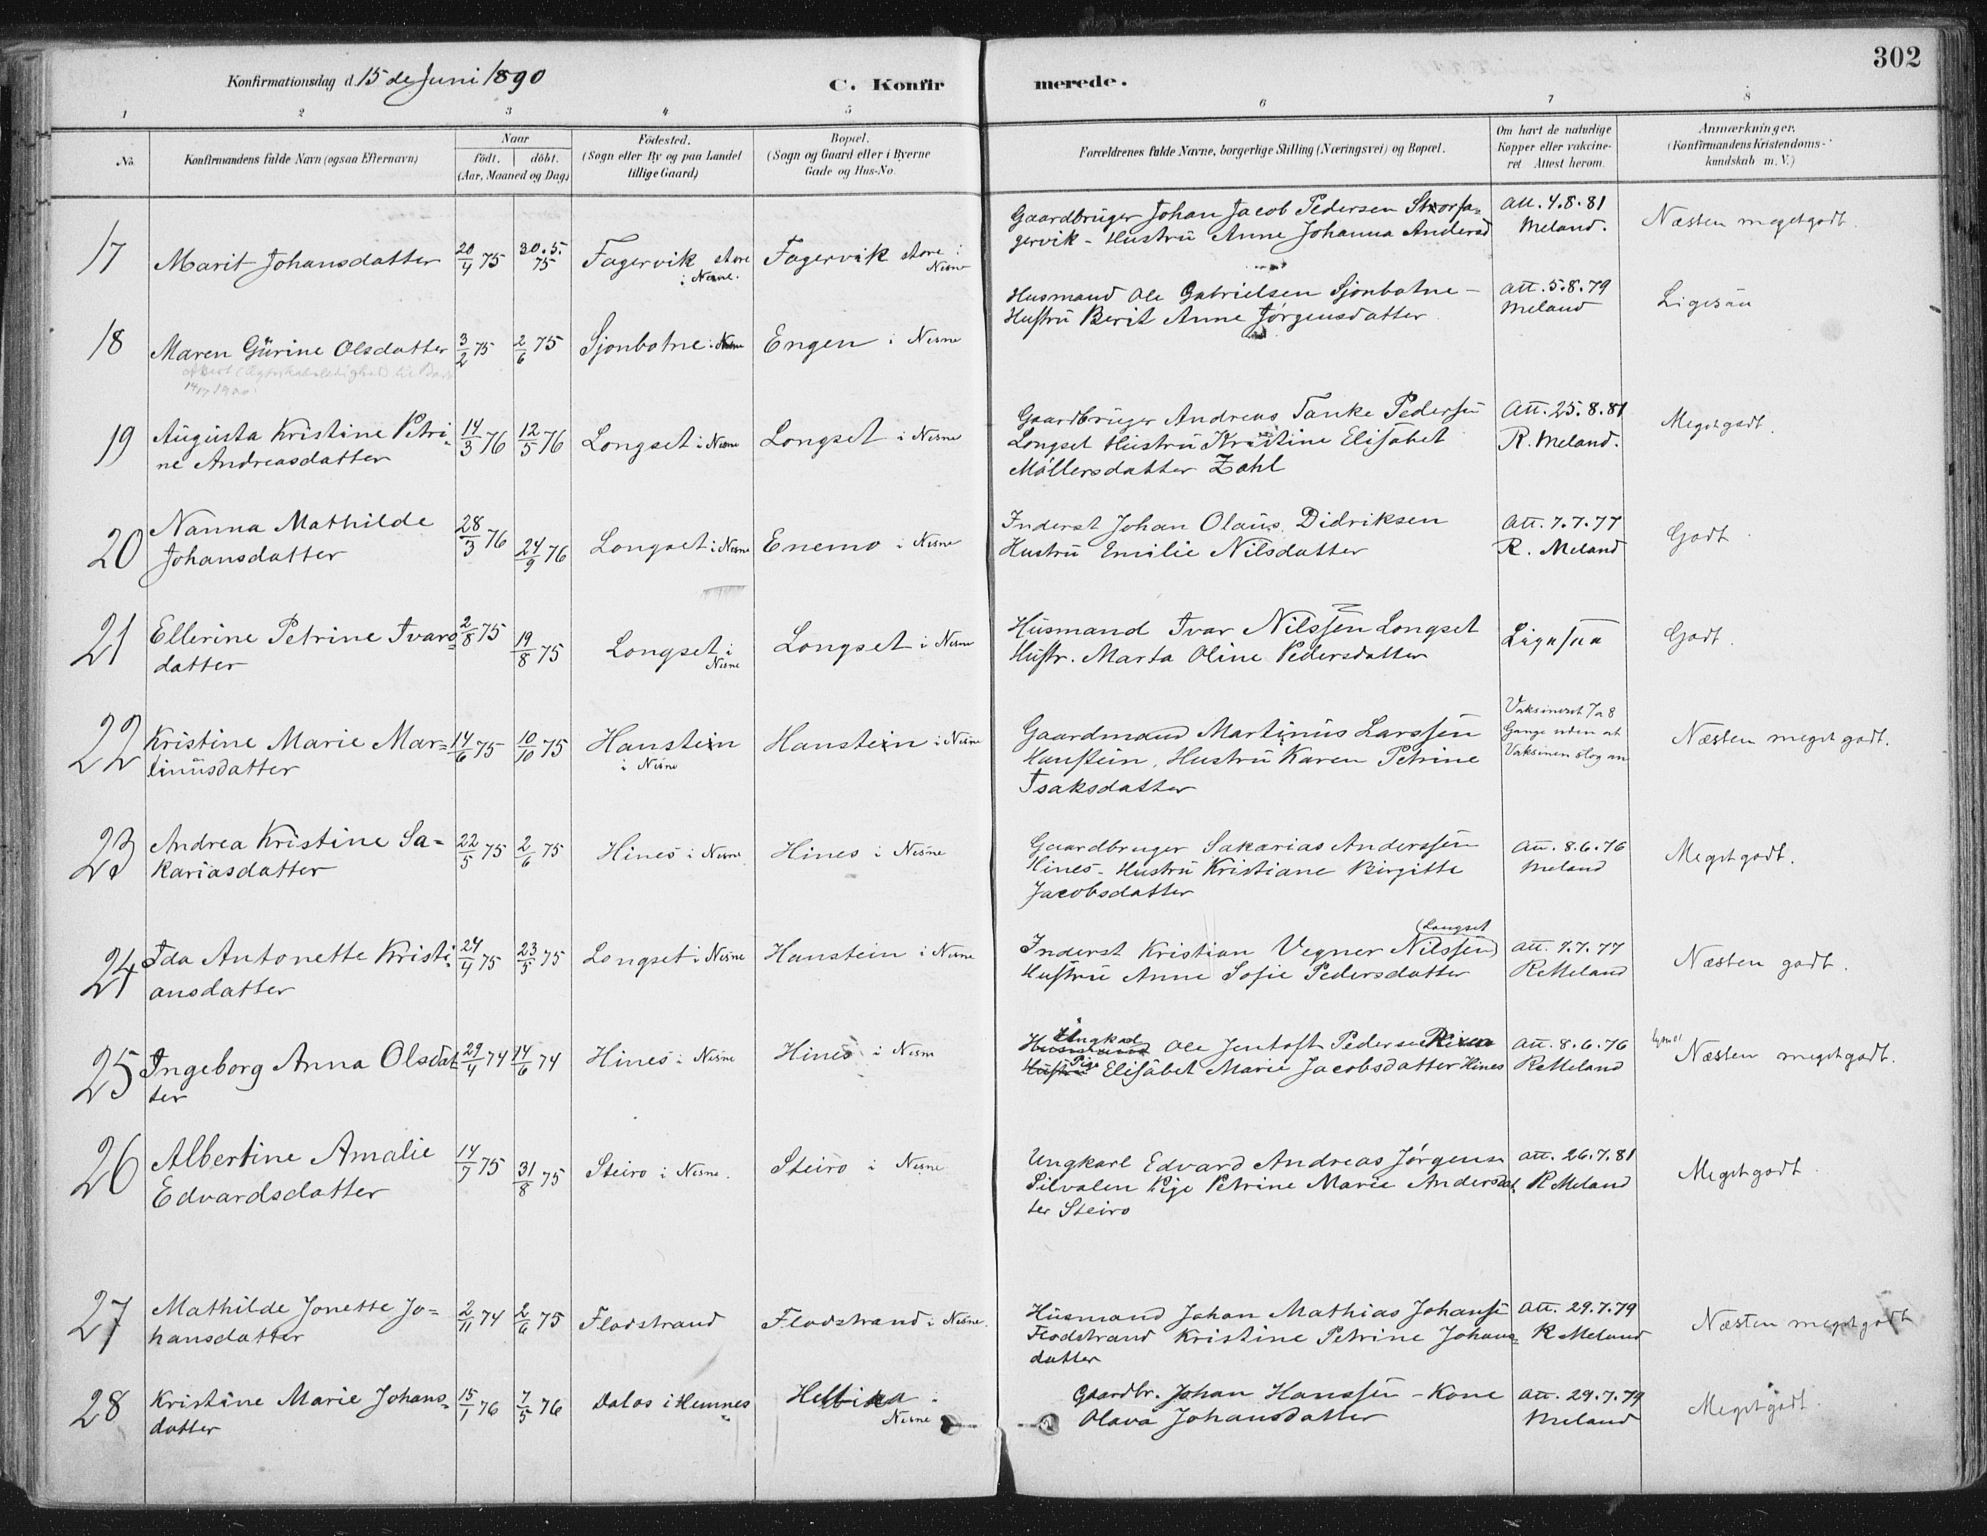 302
Konfirmationsdag d. 15 de Juni 1890
C. Konfirmerede.
1 2 3 4 5 6 7 8
No.
Konfirmandens fulde Navn (ogsaa Efternavn)
Naar
födt. döbt.
(Aar, Maaned og Dag)
Födested.
(Sogn eller By og paa Landet
tillige Gaard)
Bopæl.
(Sogn og Gaard eller i Byerne
Gade og Hus-No.
Forældrenes fulde Navne, borgerlige Stilling (Næringsvei) og Bopæl.
Om havt de naturlige
Kopper eller vakcine-
ret Attest herom.
Anmærkninger.
(Konfirmandens Kristendoms-
kundskab m. V.)
17 Marit Johansdatter 20/4 75 30.5.75 Fagervik store i Nesne. Fagervik store i Nesne
Gaardbruger Johan Jacob Pedersen Storfa-
gervik - Hustru Anne Johanna Andersd
Att. 4.8.81
Meland.
Næsten megetgodt.
18 Maren Gurine Olsdatter 3/2 75 2/6 75 Sjonbotne i Nesne Engen i Nesne
Husmand Ole Gabrielsen Sjonbotne -
Hustru Berit Anne Jørgensdatter
Att. 5.8.79
Meland
Ligesaa
19 Augusta Kristine Petri-
ne Andreasdatter 14/3 76 12/5 76 Longset i Nesne Longset i Nesne
Gaardbruger Andreas Tanke Pedersen
Longset Hustru Kristine Elisabet
Møllersdatter Zahl
Att. 25.8.81
R. Meland.
Megetgodt.
20 Nanna Mathilde
Johansdatter 28/3 76 24/9 76 Longset i Nesne Enemo i Nesne
Inderst Johan Olaus Didriksen
Hustru Emilie Nilsdatter
Att. 7.7.77
R. Meland
Godt.
21 Ellerine Petrine Ivars-
datter 2/8 75 19/8 75 Longset i Nesne Longset i Nesne
Husmand Ivar Nilssen Longset
Hustr. Marta Oline Pedersdatter
Ligesaa
Godt.
22 Kristine Marie Mar-
tinusdatter 14/6 75 10/10 75 Hanstein i Nesne Hanstein i Nesne
Gaardmand Martinus Larssen
Hanstein, Hustru Karen Petrine
Isaksdatter
Vaksineret 7 a 8
Gange uden at
Vaksinen slog an
Næsten megetgodt.
23 Andrea Kristine Sa-
kariasdatter 22/5 75 2/6 75 Hines i Nesne Hines i Nesne
Gaardbruger Sakarias Anderssen
Hines - Hustru Kristiane Birgitte
Jacobsdatter
Att. 8.6.76
Meland
Megetgodt.
24 Ida Antonette Kristi-
ansdatter 24/4 75 23/5 75 Longset i Nesne Hanstein i Nesne
(Longset
Inderst Kristian Vegner Nilssen)
Hustru Anne Sofie Pedersdatter
Att. 7.7.77
R Meland
Næsten godt.
25 Ingeborg Anna Olsdat-
ter 29/4 74 14/6 74 Hines i Nesne Hines i Nesne
Ungkarl Ole Jentoft Pedersen
Pige Elisabet Marie Jacobsdatter Hines
Att. 8.6.76
R Meland
Næsten megetgodt.
26 Albertine Amalie
Edvardsdatter 14/7 75 31/8 75 Steiro i Nesne. Steiro i Nesne
Ungkarl Edvard Andreas Jørgens
Silvalen Pige Petrine Marie Andersdat-
ter Steiro
Att. 26.7.81
R Meland
Megetgodt.
27 Mathilde Jonette Jo-
hansdatter 2/11 74 2/6 75 Flostrand Flostrand i Nesne.
Husmand Johan Mathias Johanse
Flodstrand Kristine Petrine Johans-
datter
Att. 29.7.79
R Meland
Næsten megetgodt
28 Kristine Marie Johans-
datter 15/1 76 7/5 76 Dalos i Hemnes i Nesne
Gaardbr. Johan Hanssen - Kone
Olava Johansdatter
Att. 29.7.79
Meland
Megetgodt.